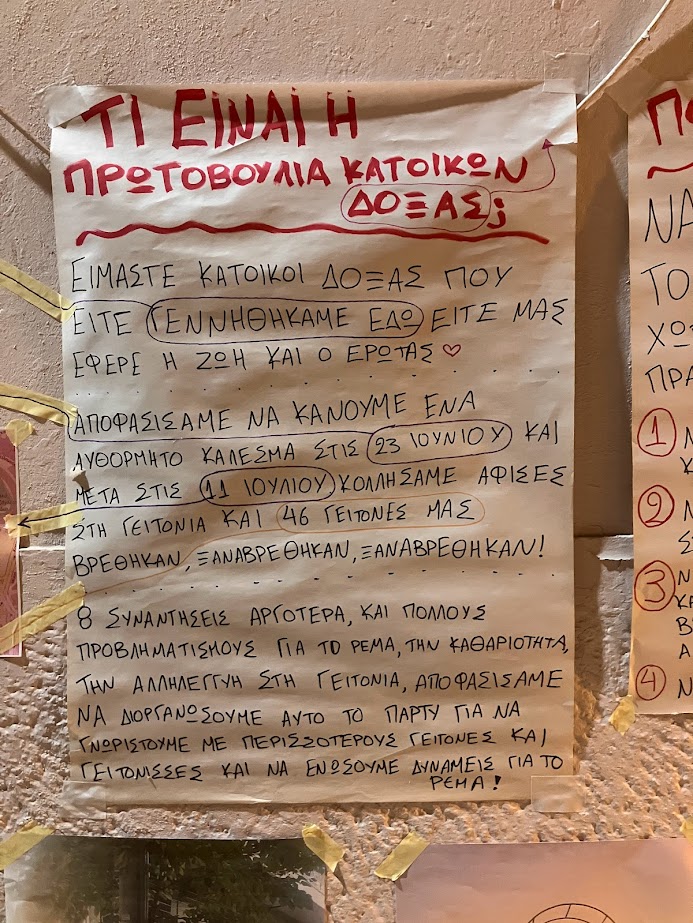 ΤΙ ΕΙΝΑΙ Η
ΠΡΩΤΟΒΟΥΛΙΑ ΚΑΤΟΙΚΩΝ
ΔΟΞΑΣ;
ΕΙΜΑΣΤΕ ΚΑΤΟΙΚΟΙ ΔΟΞΑΣ ΠΟΥ
ΕΙΤΕ ΓΕΝΝΗΘΗΚΑΜΕ ΕΔΩ ΕΙΤΕ ΜΑΣ
ΕΦΕΡΕ Η ΖΩΗ ΚΑΙ Ο ΕΡΩΤΑΣ ♡
ΑΠΟΦΑΣΙΣΑΜΕ ΝΑ ΚΑΝΟΥΜΕ ΕΝΑ
ΑΥΘΟΡΜΗΤΟ ΚΑΛΕΣΜΑ ΣΤΙΣ 23 ΙΟΥΝΙΟΥ ΚΑΙ
ΜΕΤΑ ΣΤΙΣ 11 ΙΟΥΛΙΟΥ ΚΟΛΛΗΣΑΜΕ ΑΦΙΣΕΣ
ΣΤΗ ΓΕΙΤΟΝΙΑ ΚΑΙ 46 ΓΕΙΤΟΝΕΣ ΜΑΣ
ΒΡΕΘΗΚΑΝ, ΞΑΝΑΒΡΕΘΗΚΑΝ, ΞΑΝΑΒΡΕΘΗΚΑΝ!
8 ΣΥΝΑΝΤΗΣΕΙΣ ΑΡΓΟΤΕΡΑ, ΚΑΙ ΠΟΛΛΟΥΣ
ΠΡΟΒΛΗΜΑΤΙΣΜΟΥΣ ΓΙΑ ΤΟ ΡΕΜΑ, ΤΗΝ ΚΑΘΑΡΙΟΤΗΤΑ,
ΤΗΝ ΑΛΛΗΛΕΓΓΥΗ ΣΤΗ ΓΕΙΤΟΝΙΑ, ΑΠΟΦΑΣΙΣΑΜΕ
ΝΑ ΔΟΡΓΑΝΩΣΟΥΜΕ ΑΥΤΟ ΤΟ ΠΑΡΤΥ ΓΙΑ ΝΑ
ΓΝΩΡΙΣΤΟΥΜΕ ΜΕ ΠΕΡΙΣΣΟΤΕΡΟΥΣ ΓΕΙΤΟΝΕΣ ΚΑΙ
ΓΕΙΤΟΝΙΣΣΕΣ ΚΑΙ ΝΑ ΕΝΩΣΟΥΜΕ ΔΥΝΑΜΕΙΣ ΓΙΑ ΤΟ
ΡΕΜΑ!
ΝΑ
ΤΟ
1
2
3
4